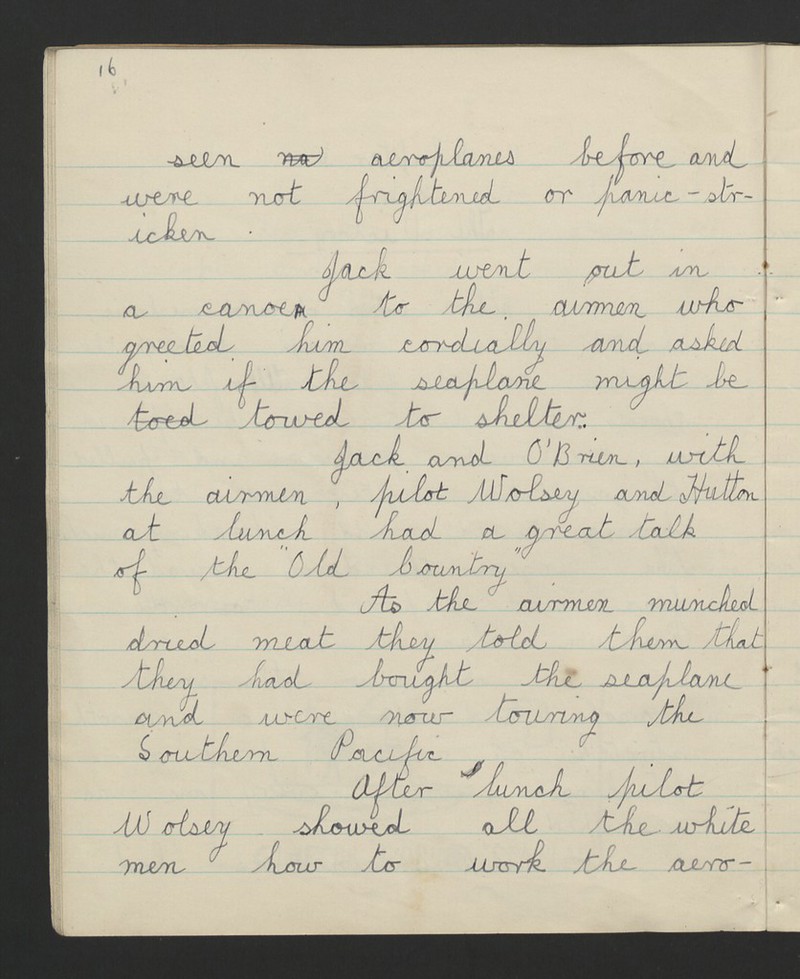 16
seen na aeroplanes before and
were not frightened or panic-str-
icken.
Jack went out in
a canoe to the airmen who
greeted him cordially and asked
him if the seaplane might be
toed towed to shelter.
Jack and O'Brien, with
the airmen, pilot Wolsey and Hutton
at lunch had a great talk
of the "Old Country"
As the airmen munched
dried meat they told them that
they had bought the seaplane
and were now touring the
Southern Pacific
After lunch pilot
Wolsey showed all the white
men how to work the aero-